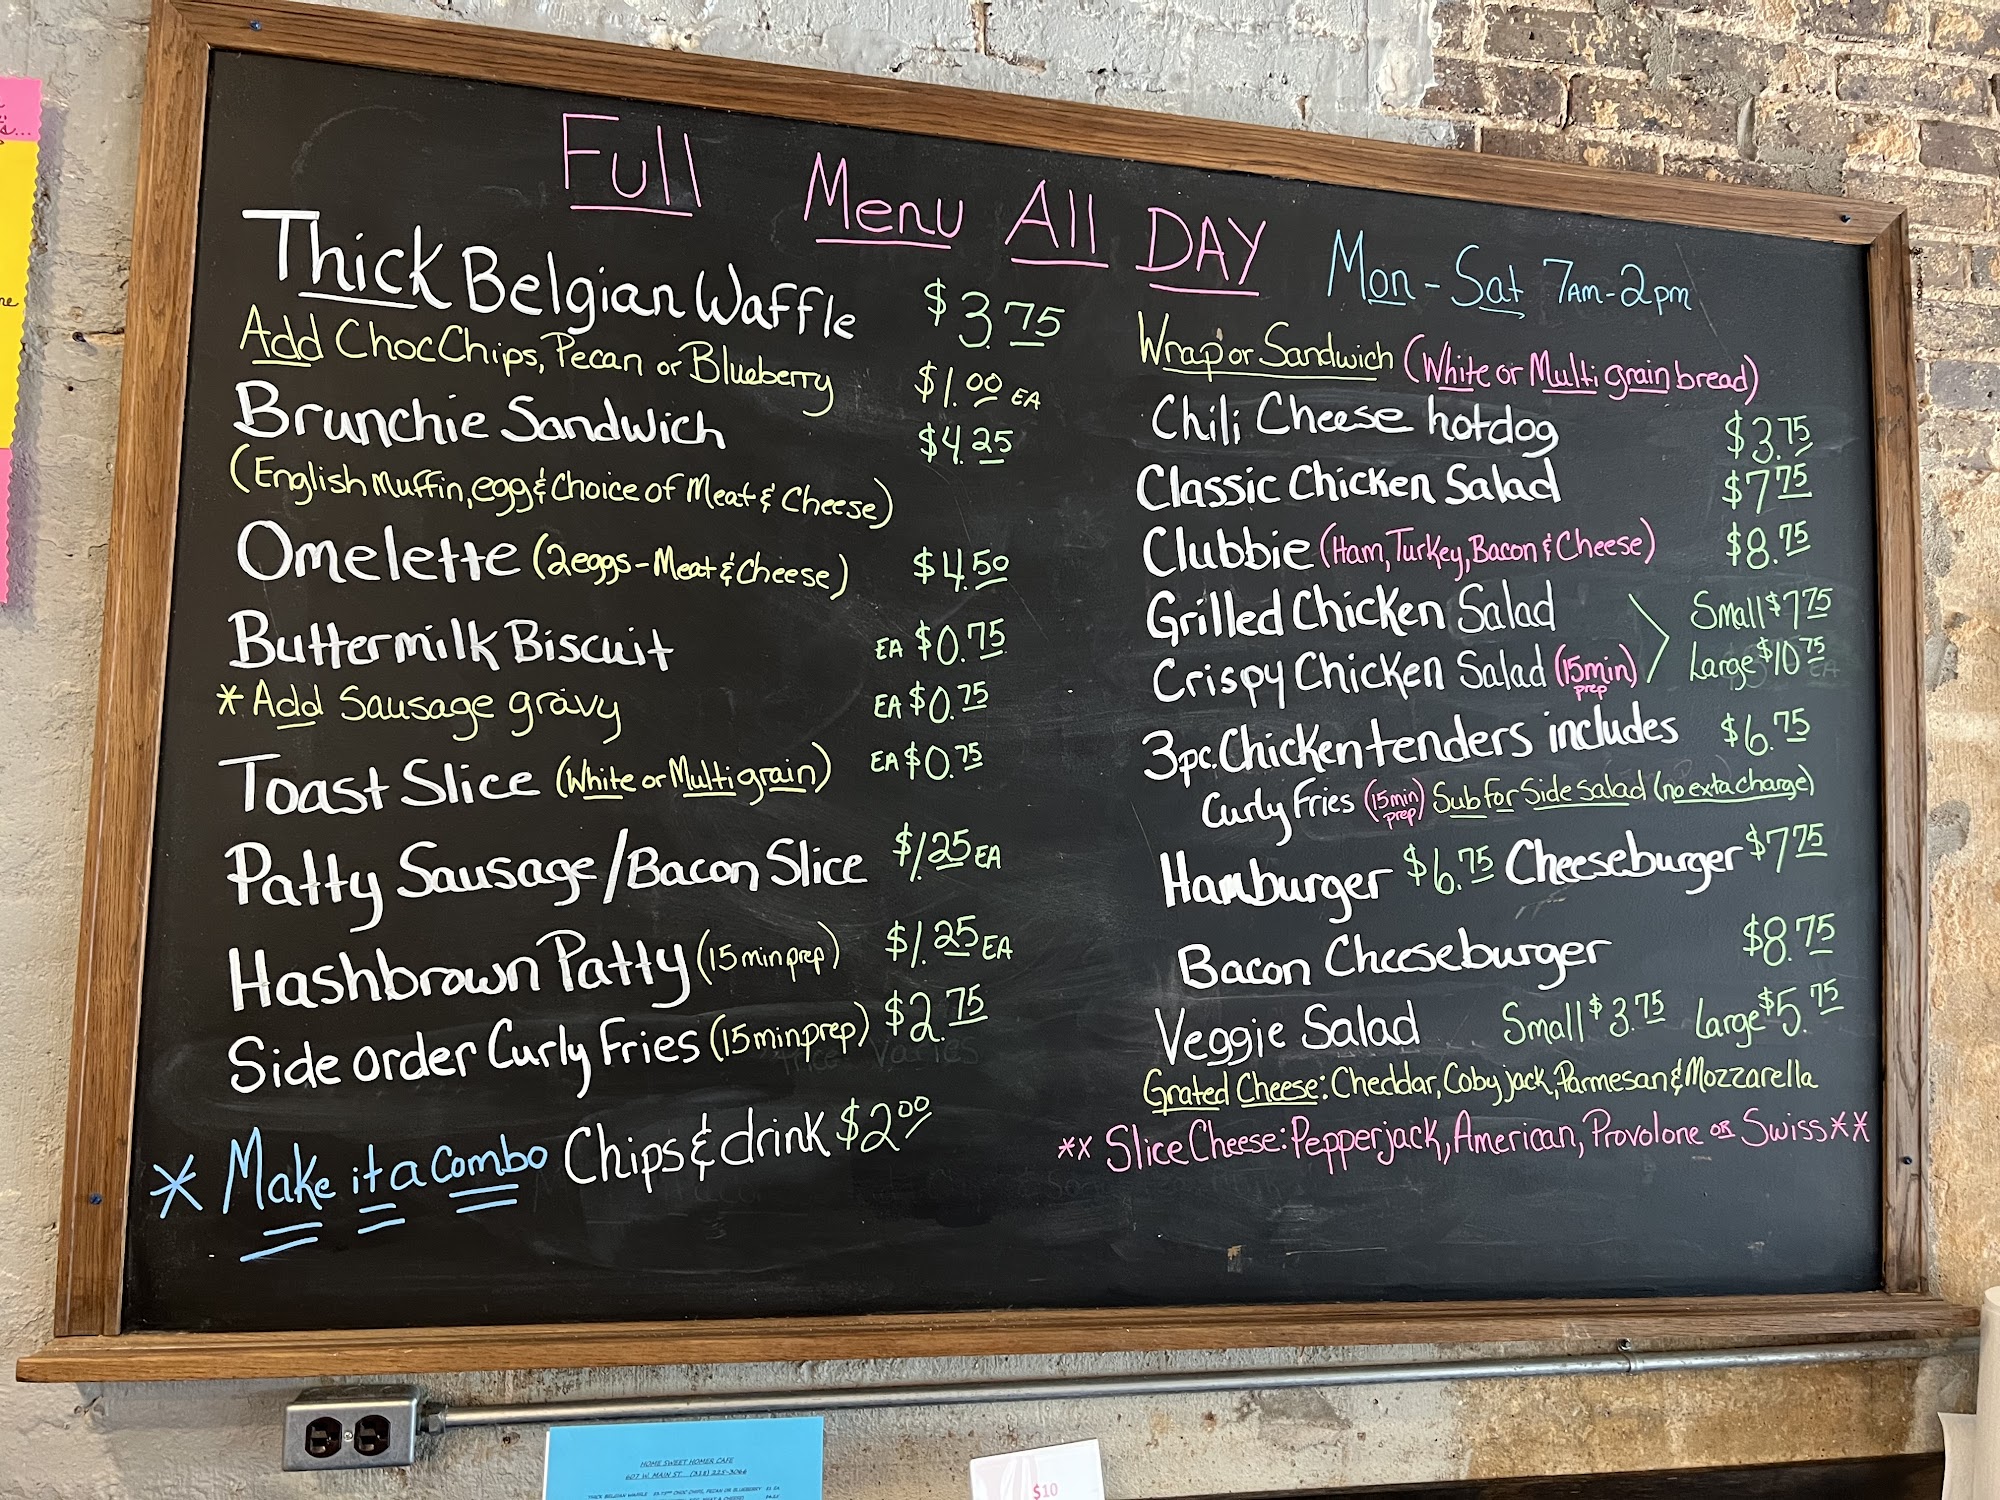 Full Menu All DAY
Mon-Sat 7AM-2pm
Thick Belgian Waffle $3.75
Add Choc Chips, Pecan or Blueberry $1.00 EA
Brunchie Sandwich $4.25
(English Muffin, egg & Choice of Meat & Cheese)
Omelette (2eggs-Meat & Cheese) $4.50
Buttermilk Biscuit EA $0.75
*Add Sausage gravy EA $0.75
Toast Slice (White or Multi grain) EA $0.75
Patty Sausage/Bacon Slice $1.25 EA
Hashbrown Patty (15 min prep) $1.25 EA
Side order Curly Fries (15 min prep) $2.75
* Make it a Combo Chips & drink $2.00
Wrap or Sandwich (White or Multi grain bread)
Chili Cheese hotdog $3.75
Classic Chicken Salad $7.75
Clubbie (Ham, Turkey, Bacon & Cheese) $8.75
Grilled Chicken Salad Small $7.75
Crispy Chicken Salad (15 min prep) Large $10.75
3pc. Chicken tenders includes $6.75
Curly Fries (15 min prep) Sub for Side Salad (no exta charge)
Hamburger $6.75 Cheeseburger $7.75
Bacon Cheeseburger $8.75
Veggie Salad Small $3.75 Large $5.75
Grated Cheese: Cheddar, Coby jack, Parmesan & Mozzarella
** Slice Cheese: Pepperjack, American, Provolone or Swiss **
HOME SWEET HOMER CAFE
607 W. MAIN ST. (318) 225-3066
$10